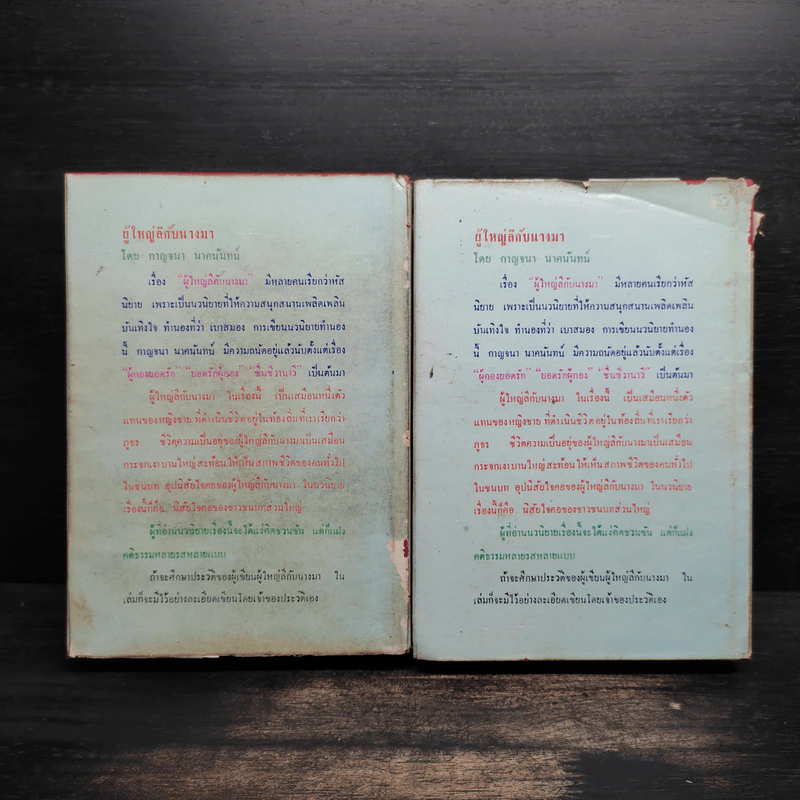 ผู้ใหญ่ลีกับนางมา
โดย กาญจนา นาคนันทน์
เรื่อง "ผู้ใหญ่ลีกับนางมา" มีหลายคนเรียกว่าหัส
นิยาย เพราะเป็นนวนิยายที่ให้ความสนุกสนานเพลิดเพลิน
บันเทิงใจ ทำนองที่ว่า เบาสมอง การเขียนนวนิยายทำนอง
นี้ กาญจนา นาคนันทน์ มีความถนัดอยู่แล้วนับตั้งแต่เรื่อง
"ผู้กองยอดรัก" "ยอดรักผู้กอง" "ชื่นชีวานาวี" เป็นต้นมา
ผู้ใหญ่ลีกับนางมา ในเรื่องนี้ เป็นเสมือนหนึ่งตัว
แทนของหญิงชาย ที่ดำเนินชีวิตอยู่ในท้องถิ่นที่เราเรียกว่า
ภูธร ชีวิตความเป็นอยู่ของผู้ใหญ่ลีกับนางมาเป็นเสมือน
กระจกเงาบานใหญ่สะท้อนให้เห็นสภาพชีวิตของคนทั่วไป
ในชนบท อุปนิสัยใจคอของผู้ใหญ่ลีกับนางมา ในนวนิยาย
เรื่องนี้ก็คือ นิสัยใจคอของชาวชนบทส่วนใหญ่
ผู้ที่อ่านนวนิยายเรื่องนี้จะได้แง่คิดชวนขัน แต่ก็แฝง
คติธรรมหลายรสหลายแบบ
ถ้าจะศึกษาประวัติของผู้เขียนผู้ใหญ่ลีกับนางมา ใน
เล่มก็จะมีไว้อย่างละเอียดเขียนโดยเจ้าของประวัติเอง
ผู้ใหญ่ลีกับนางมา
โดย กาญจนา นาคนันทน์
เรื่อง "ผู้ใหญ่ลีกับนางมา" มีหลายคนเรียกว่าหัส
นิยาย เพราะเป็นนวนิยายที่ให้ความสนุกสนานเพลิดเพลิน
บันเทิงใจ ทำนองที่ว่า เบาสมอง การเขียนนวนิยายทำนอง
นี้ กาญจนา นาคนันทน์ มีความถนัดอยู่แล้วนับตั้งแต่เรื่อง
"ผู้กองยอดรัก" "ยอดรักผู้กอง" "ชื่นชีวานาวี" เป็นต้นมา
ผู้ใหญ่ลีกับนางมา ในเรื่องนี้ เป็นเสมือนหนึ่งตัว
แทนของหญิงชาย ที่ดำเนินชีวิตอยู่ในท้องถิ่นที่เราเรียกว่า
ภูธร ชีวิตความเป็นอยู่ของผู้ใหญ่ลีกับนางมาเป็นเสมือน
กระจกเงาบานใหญ่สะท้อนให้เห็นสภาพชีวิตของคนทั่วไป
ในชนบท อุปนิสัยใจคอของผู้ใหญ่ลีกับนางมา ในนวนิยาย
เรื่องนี้ก็คือ นิสัยใจคอของชาวชนบทส่วนใหญ่
ผู้ที่อ่านนวนิยายเรื่องนี้จะได้แง่คิดชวนขัน แต่ก็แฝง
คติธรรมหลายรสหลายแบบ
ถ้าจะศึกษาประวัติของผู้เขียนผู้ใหญ่ลีกับนางมา ใน
เล่มก็จะมีไว้อย่างละเอียดเขียนโดยเจ้าของประวัติเอง